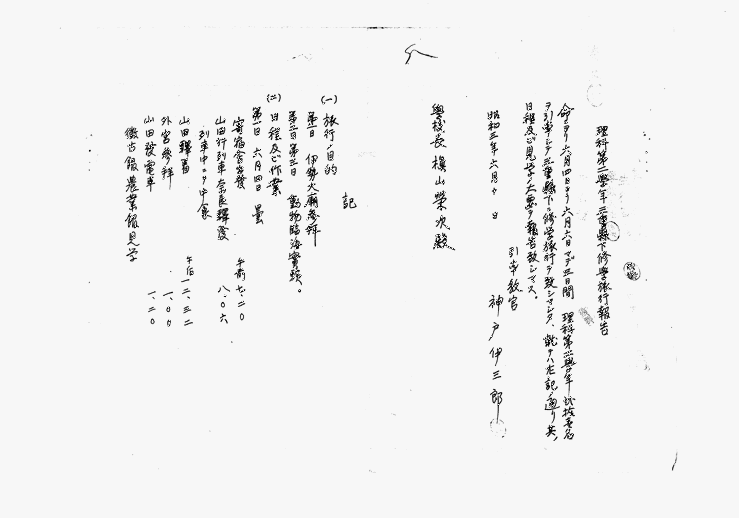 理科第二學年三重縣下修學旅行報告
命ニヨリ六月四日ヨリ六月六日マデ三日間 理科第二學年
ヲ引率シテ三重縣下ニ修学旅行ヲ致シマシタ、就テハ左記ノ通リ其ノ
日程及ビ見学ノ大要ヲ報告致シマス。
引率教官
神戸伊三郎
昭和三年六月 日
學校長 槇山榮次殿
記
(一) 旅行ノ目的
第一日 伊勢大廟参拜
第二日第三日 動物臨海實験。
(二) 日程及ビ作業
第一日 六月四日 曇
寄宿舎出發 午前七.二〇
山田行列車奈良驛發 八.〇六
列車中ニテ中食
山田驛着 午后一二.三二
外宮参拜 一.〇〇
山田發電車 一.二〇
徴古館農業館見学